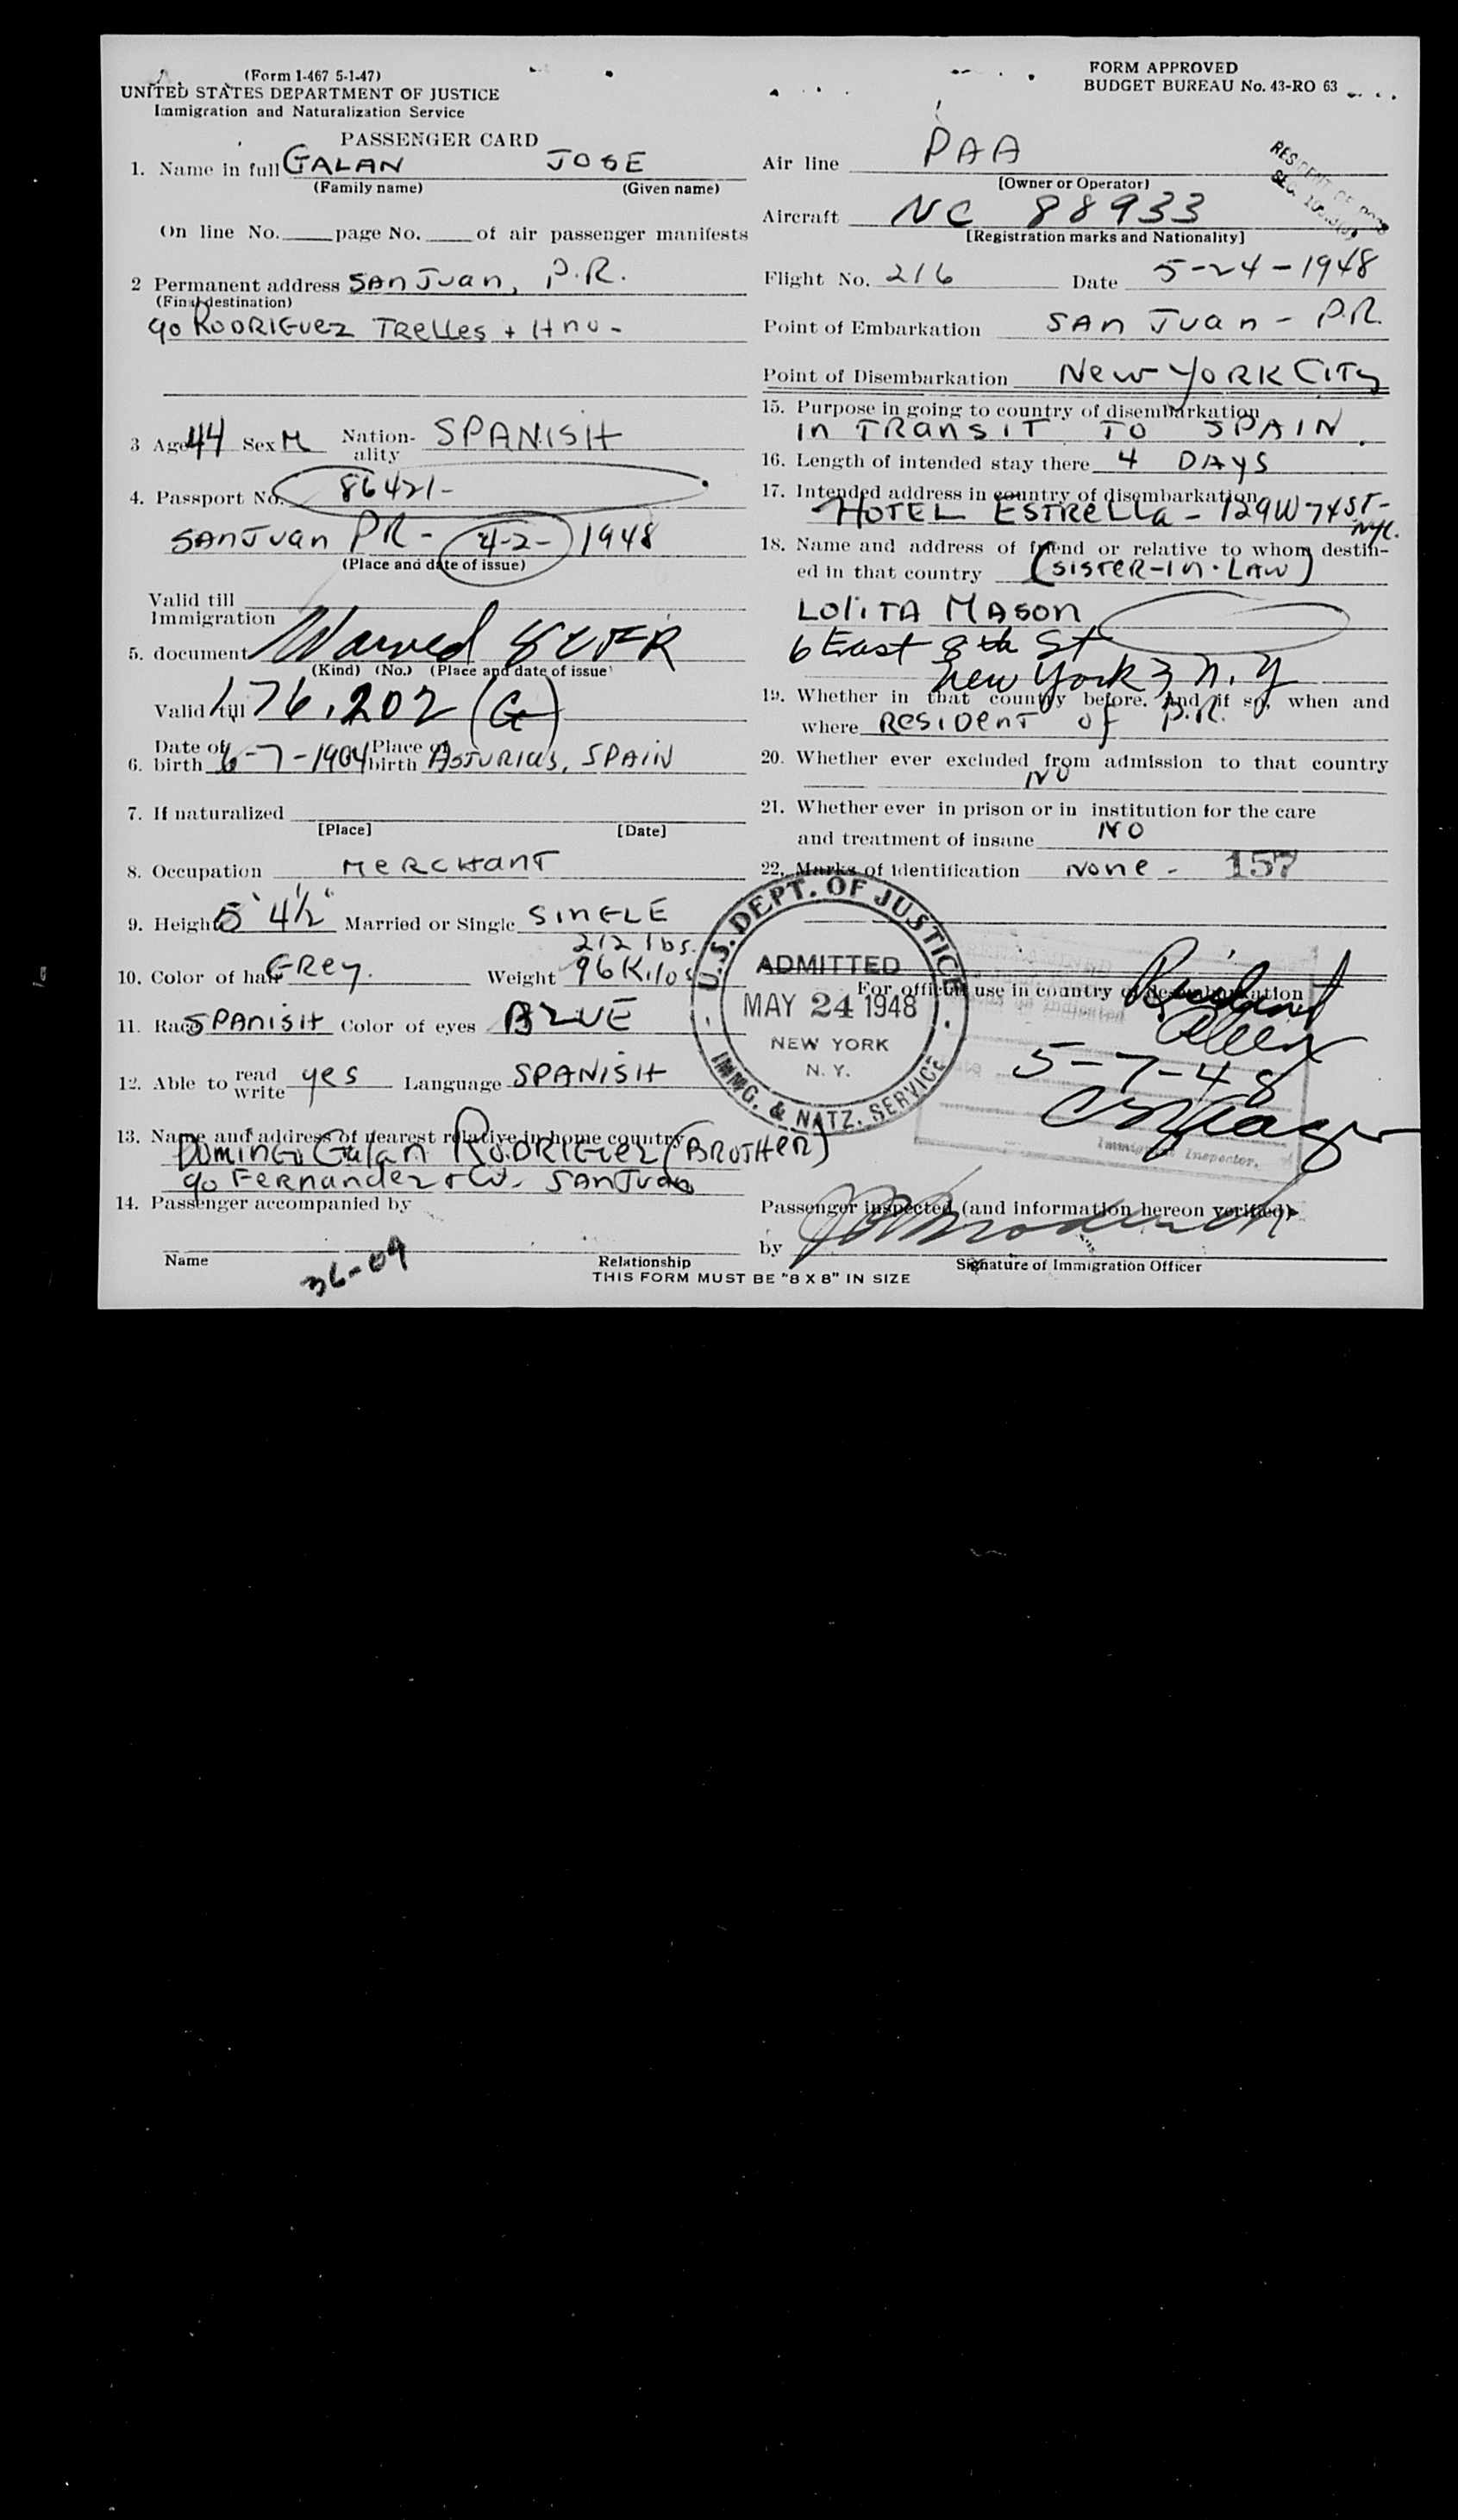 (Form I-467 5-1-47)
UNITED STATES DEPARTMENT OF JUSTICE
Immigration and Naturalization Service
PASSENGER CARD
1. Name in full GALAN JOSE
(Family name) (Given name)
On line No. page No. of air passenger manifests
2 Permanent address SAN JUAN, P.R.
(Final destination)
c/o RODRIGUEZ TRELLES + Hno-
3 Age 44 Sex M Nation-ality SPANISH
4. Passport No. 86421-
SAN JUAN PR- 4-2- 1948
(Place and date of issue)
Valid till
Immigration
5. document Waived
(Kind) (No.) (Place and date of issue)
Valid till 176.202 (G)
6. Date of birth 6-7-1904 Place of birth ASTURIAS, SPAIN
7. If naturalized
[Place] [Date]
8. Occupation MERCHANT
9. Height 5' 4½" Married or Single SINGLE
212 lbs.
10. Color of hair GREY. Weight 96 Kilos
11. Race SPANISH Color of eyes BLUE
12. Able to read write yes Language SPANISH
13. Name and address of nearest relative in home country
DOMINGO GALAN RODRIGUEZ (BROTHER)
c/o FERNANDEZ + Co. SAN JUAN
14. Passenger accompanied by
Name Relationship
36-09
THIS FORM MUST BE "8 X 8" IN SIZE
FORM APPROVED
BUDGET BUREAU No. 43-RO 63
Air line PAA
[Owner or Operator]
Aircraft NC 88933
[Registration marks and Nationality]
Flight No. 216 Date 5-24-1948
Point of Embarkation SAN JUAN - P.R.
Point of Disembarkation NEW YORK CITY
15. Purpose in going to country of disembarkation
IN TRANSIT TO SPAIN.
16. Length of intended stay there 4 DAYS
17. Intended address in country of disembarkation
HOTEL ESTRELLA - 129 W 74 ST- NYC.
18. Name and address of friend or relative to whom destin-
ed in that country (SISTER-IN-LAW)
LOLITA MASON
6 East 8th St
New York 3 N.Y
19. Whether in that country before. And if so, when and
where RESIDENT of P.R.
20. Whether ever excluded from admission to that country
NO
21. Whether ever in prison or in institution for the care
and treatment of insane NO
22. Marks of identification NONE - 157
U.S. DEPT. OF JUSTICE
ADMITTED
MAY 24 1948
NEW YORK
N. Y.
IMMG. & NATZ. SERVICE
For official use in country of disembarkation
Resident
Alien
5-7-48
Immigrant Inspector.
Passenger inspected (and information hereon verified)
by
Signature of Immigration Officer